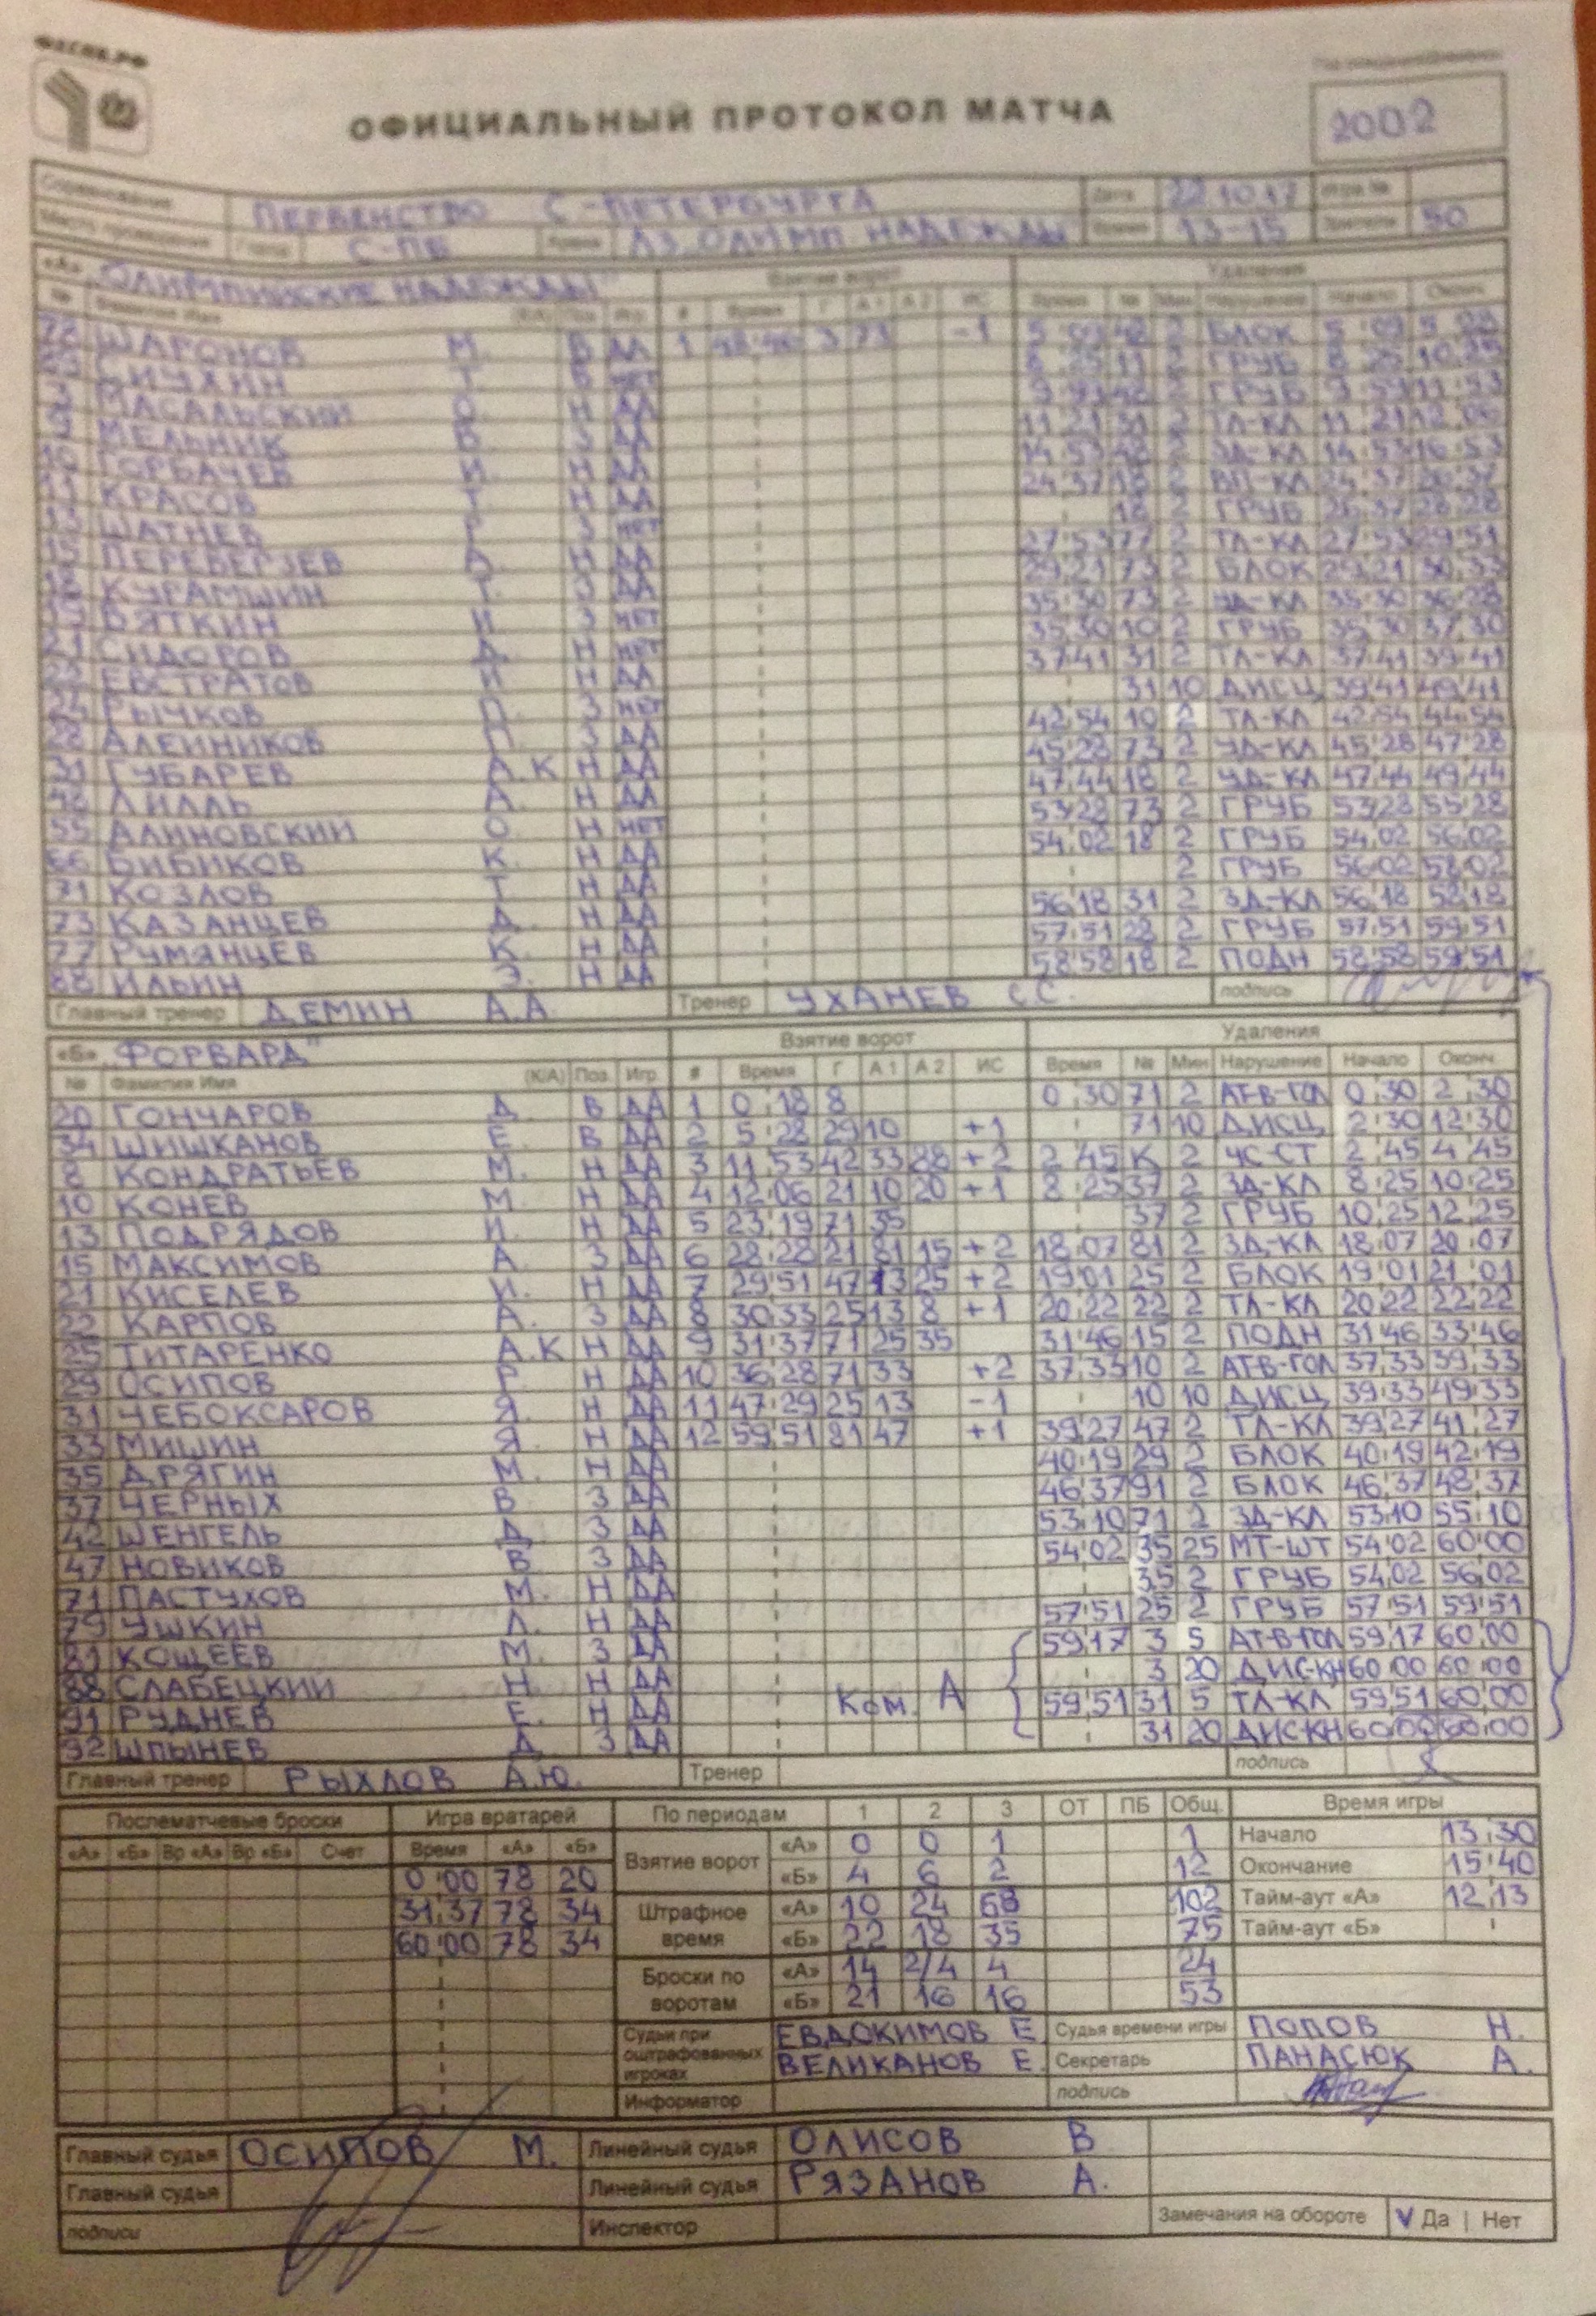 ФХСПБ.РФ
ОФИЦИАЛЬНЫЙ ПРОТОКОЛ МАТЧА
2002
Соревнование ПЕРВЕНСТВО С-ПЕТЕРБУРГА Дата 22.10.17 Игра №
Место проведения Город С-ПБ Арена ЛЗ. ОЛИМП НАДЕЖДЫ Время 13-15 Зрители 50
«А» „ОЛИМПИЙСКИЕ НАДЕЖДЫ" Взятие ворот Удаления
№ Фамилия Имя (К/А) Поз. Игр. # Время Г А1 А2 ИС Время № Мин Нарушение Начало Оконч.
78 ШАРОНОВ М. В ДА 1 3 73 -1 2 БЛОК
Т В НЕТ 8 25 11 2 ГРУБ 8 25 10 25
МАСАЛЬСКИЙ О. Н ДА 2 ГРУБ
9 МЕЛЬНИК В. З ДА 11 21 31 2 ТЛ-КЛ 11 21 12 06
10 ГОРБАЧЕВ И. Н ДА 14 53 2 ЗД-КЛ 14 53 16 53
11 КРАСОВ Т. Н ДА 24 37 18 2 24 37 26 37
ШАТНЕВ Г. З НЕТ 18 2 ГРУБ 26 37 28 28
15 ПЕРЕВЕРЗЕВ А. Н ДА 27 53 77 2 ТЛ-КЛ 27 53 29 51
18 КУРАМШИН Т. З ДА 29 21 73 2 БЛОК 29 21 30 33
19 ВЯТКИН И З НЕТ 35 30 73 2 УД-КЛ 35 30 36 28
21 СИДОРОВ Д. Н НЕТ 35 30 10 2 ГРУБ 35 30 37 30
ЕВСТРАТОВ И Н ДА 37 41 31 2 ТЛ-КЛ 37 41 39 41
24 РЫЧКОВ П. З НЕТ 31 10 ДИСЦ 39 41 49 41
28 АЛЕЙНИКОВ П. З ДА 42 54 10 2 ТЛ-КЛ 42 54 44 54
31 ГУБАРЕВ А.К Н ДА 45 28 73 2 УД-КЛ 45 28 47 28
ЛИЛЛЬ А. Н ДА 47 44 18 2 УД-КЛ 47 44 49 44
55 АЛИНОВСКИЙ О. Н НЕТ 53 28 73 2 ГРУБ 53 28 55 28
66 БИБИКОВ К. Н ДА 54 02 18 2 ГРУБ 54 02 56 02
71 КОЗЛОВ Т Н ДА 2 ГРУБ 56 02 58 02
73 КАЗАНЦЕВ Д. Н ДА 56 18 31 2 ЗД-КЛ 56 18 58 18
77 РУМЯНЦЕВ К. Н ДА 57 51 28 2 ГРУБ 57 51 59 51
88 ИЛЬИН Э. Н ДА 58 58 18 2 ПОДН 58 58 59 51
Главный тренер ДЕМИН А.А. Тренер УХАНЕВ С.С. подпись
«Б» „ФОРВАРД" Взятие ворот Удаления
№ Фамилия Имя (К/А) Поз. Игр. # Время Г А1 А2 ИС Время № Мин Нарушение Начало Оконч.
20 ГОНЧАРОВ Д. В ДА 1 0 18 8 0 30 71 2 АТ-В-ГОЛ 0 30 2 30
34 ШИШКАНОВ Е. В ДА 2 5 28 29 10 +1 71 10 ДИСЦ 2 30 12 30
8 КОНДРАТЬЕВ М. Н ДА 3 11 53 42 33 88 +2 2 45 К 2 ЧС-СТ 2 45 4 45
10 КОНЕВ М. Н ДА 4 12 06 21 10 20 +1 8 25 37 2 ЗД-КЛ 8 25 10 25
13 ПОДРЯДОВ И. Н ДА 5 23 19 71 35 37 2 ГРУБ 10 25 12 25
15 МАКСИМОВ А. З ДА 6 28 28 21 81 15 +2 18 07 81 2 ЗД-КЛ 18 07 20 07
21 КИСЕЛЕВ И. Н ДА 7 29 51 47 13 25 +2 19 01 25 2 БЛОК 19 01 21 01
22 КАРПОВ А. З ДА 8 30 33 25 13 8 +1 20 22 22 2 ТЛ-КЛ 20 22 22 22
25 ТИТАРЕНКО А.К Н ДА 9 31 37 71 25 35 31 46 15 2 ПОДН 31 46 33 46
29 ОСИПОВ Р. Н ДА 10 36 28 71 33 +2 37 33 10 2 АТ-В-ГОЛ 37 33 39 33
31 ЧЕБОКСАРОВ Я. Н ДА 11 47 29 25 13 -1 10 10 ДИСЦ 39 33 49 33
33 МИШИН Я. Н ДА 12 59 51 81 47 +1 39 27 47 2 ТЛ-КЛ 39 27 41 27
35 ДРЯГИН М. Н ДА 40 19 29 2 БЛОК 40 19 42 19
37 ЧЕРНЫХ В З ДА 46 37 91 2 БЛОК 46 37 48 37
42 ШЕНГЕЛЬ Д З ДА 53 10 71 2 ЗД-КЛ 53 10 55 10
47 НОВИКОВ В З ДА 54 02 35 25 МТ-ШТ 54 02 60 00
71 ПАСТУХОВ М. Н ДА 35 2 ГРУБ 54 02 56 02
79 УШКИН Л. Н ДА 57 51 25 2 ГРУБ 57 51 59 51
81 КОЩЕЕВ М. З ДА 59 17 3 5 АТ-В-ГОЛ 59 17 60 00
88 СЛАБЕЦКИЙ Н. Н ДА 3 20 ДИС-КН 60 00 60 00
91 РУДНЕВ Е. Н ДА Ком. А 59 51 31 5 ТЛ-КЛ 59 51 60 00
92 ШПЫНЕВ Д З ДА 31 20 ДИС-КН 60 00 60 00
Главный тренер РЫХЛОВ А.Ю. Тренер подпись
Послематчевые броски Игра вратарей По периодам 1 2 3 ОТ ПБ Общ. Время игры
«А» «Б» Вр «А» Вр «Б» Счет Время «А» «Б» Взятие ворот «А» 0 0 1 1 Начало 13 30
0 00 78 20 «Б» 4 6 2 12 Окончание 15 40
31 37 78 34 Штрафное время «А» 10 24 68 102 Тайм-аут «А» 12 13
60 00 78 34 «Б» 22 18 35 75 Тайм-аут «Б»
Броски по воротам «А» 14 2/4 4 24
«Б» 21 16 16 53
Судьи при оштрафованных игроках ЕВДОКИМОВ Е Судья времени игры ПОПОВ Н.
ВЕЛИКАНОВ Е. Секретарь ПАНАСЮК А.
Информатор подпись
Главный судья ОСИПОВ М. Линейный судья ОЛИСОВ В
Главный судья Линейный судья РЯЗАНОВ А.
подписи Инспектор Замечания на обороте V Да | Нет